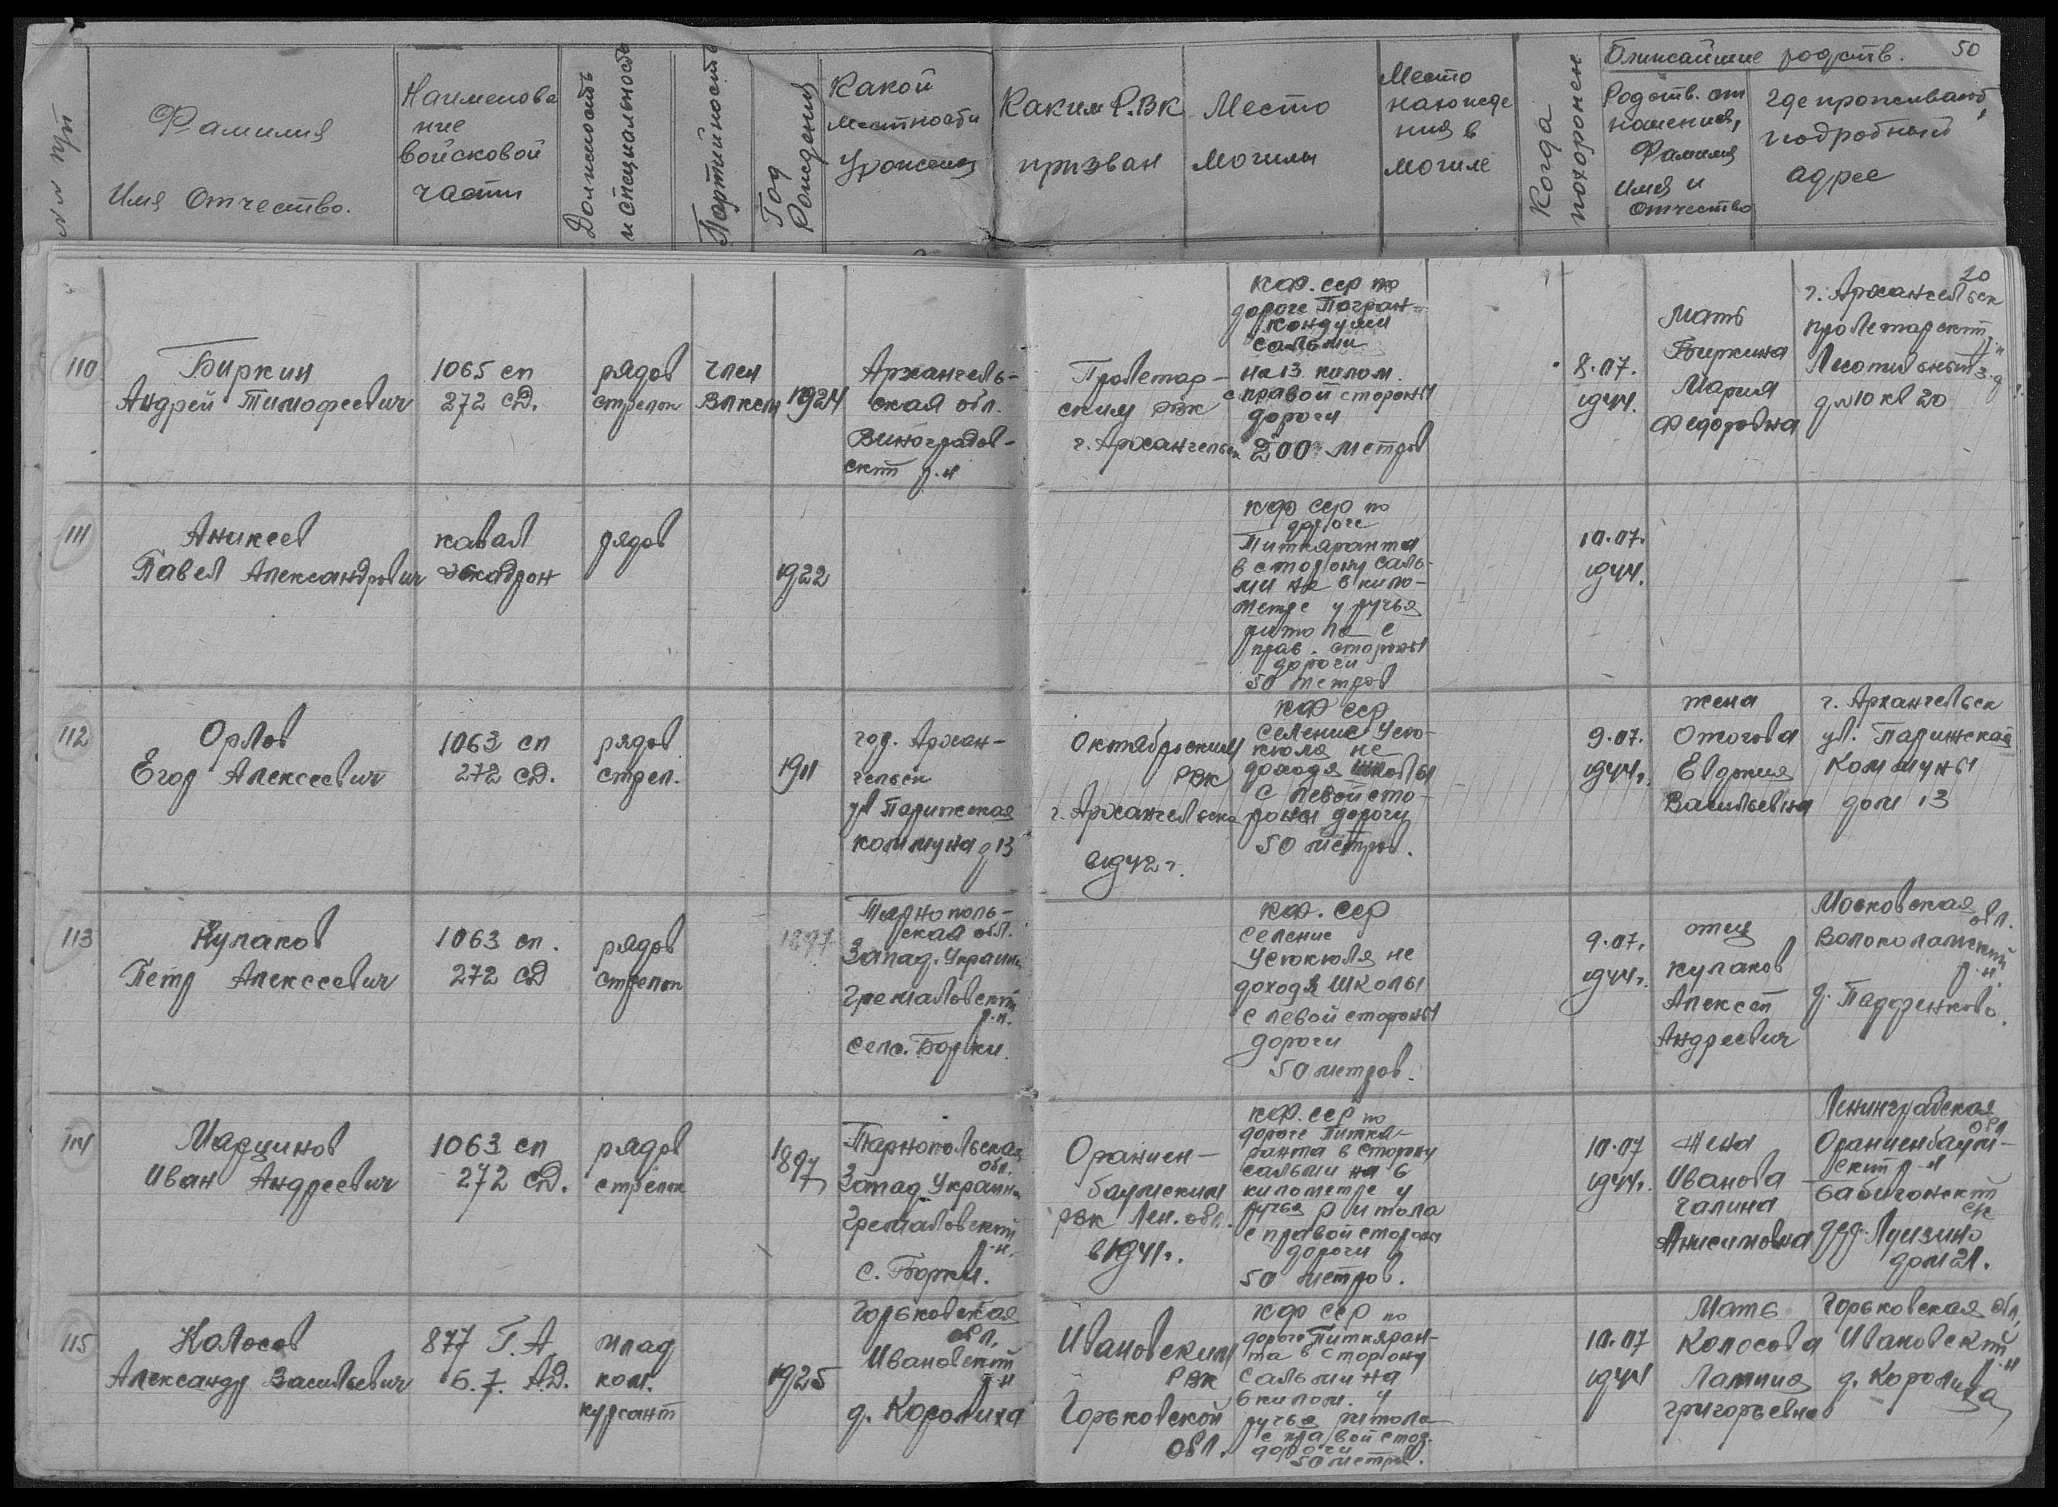 №№ п/п
Фамилия
Имя Отчество.
Наименова
ние
войсковой
части
Должность
и специальность
Партийность
Год
Рождения
Какой
местности
урожен
Каким Р.ВК
призван
Место
могилы
Место
нахожде
ния в
могиле
Когда
похоронен
Ближайшие родств.
50
Родств. от
ношения,
Фамилия
Имя и
Отчество
Где проживают,
подробный
адрес
20
110
Биркин
Андрей Тимофеевич
1065 сп
272 СД.
рядов
стрелок
член
ВЛКСМ
1924
Архангель-
ская обл.
Виноградов-
ский р-н
Пролетар-
ским РВК
г. Архангельск
КФ. ССР по
дороге Погран-
кондуши
Сальми
на 13 килом.
с правой стороны
дороги
200 метров
8.07.
1944.
Мать
Биркина
Мария
Федоровна
г. Архангельск
Пролетарский
р-н
Лесопильный з-д
д №10 кв 20
111
Аникеев
Павел Александрович
кавал
эскадрон
рядов
1922
КФ ССР по
дороге
Питкяранта
в сторону Саль-
ми на 6 кило-
метре у ручья
ритола с
прав. стороны
дороги
50 метров
10.07.
1944.
112
Орлов
Егор Алексеевич
1063 сп
272 СД.
рядов
стрел.
1911
гор. Архан-
гельск
ул Парижская
коммуна д 13
Октябрьским
РВК
г. Архангельска
в 1942 г.
КФ ССР
селение Усю-
кюля не
доходя школы
с левой сто-
роны дороги
50 метров.
9.07.
1944г.
жена
Отогова
Евдокия
Васильевна
г. Архангельск
ул. Парижская
Коммуны
дом 13
113
Кулаков
Петр Алексеевич
1063 сп.
272 СД
рядов
стрелок
1897
Тарнополь-
ская обл.
Запад. Украина
Гремаловский
р-н.
село. Борки.
КФ. ССР
селение
Усюкюля не
доходя школы
с левой стороны
дороги
50 метров.
9.07.
1944г.
отец
Кулаков
Алексей
Андреевич
Московская
обл.
Волоколамский
р-н
д. Парфенково.
114
Марцинов
Иван Андреевич
1063 сп
272 СД.
рядов
стрелок
1897
Тарнопольская
обл.
Запад. Украина
Гремаловский
р-н.
с. Борки.
Ораниен-
баумским
РВК Лен. обл.
в 1941г.
КФ. ССР по
дороге Питкя-
ранта в сторону
Сальми на 6
километре у
ручья ритола
с правой стороны
дороги
50 метров.
10.07
1944г.
Жена
Иванова
Галина
Анисимовна
Ленинградская
обл
Ораниенбаум-
ский р-н
Бабигонский
с/с
дер. Луизино
дом 21.
115
Колосов
Александр Васильевич
877 Г.А
6.7. А.Д.
млад
ком.
курсант
1925
Горьковская
обл,
Ивановский
р-н
д. Королиха
Ивановским
РВК
Горьковской
обл.
КФ ССР по
дороге Питкяран-
та в сторону
Сальми на
6 килом. у
ручья ритола
с правой стор.
дороги
50 метров.
10.07
1944
Мать
Колосова
Лампия
Григорьевна
Горьковская обл,
Ивановский
р-н
д. Королиха